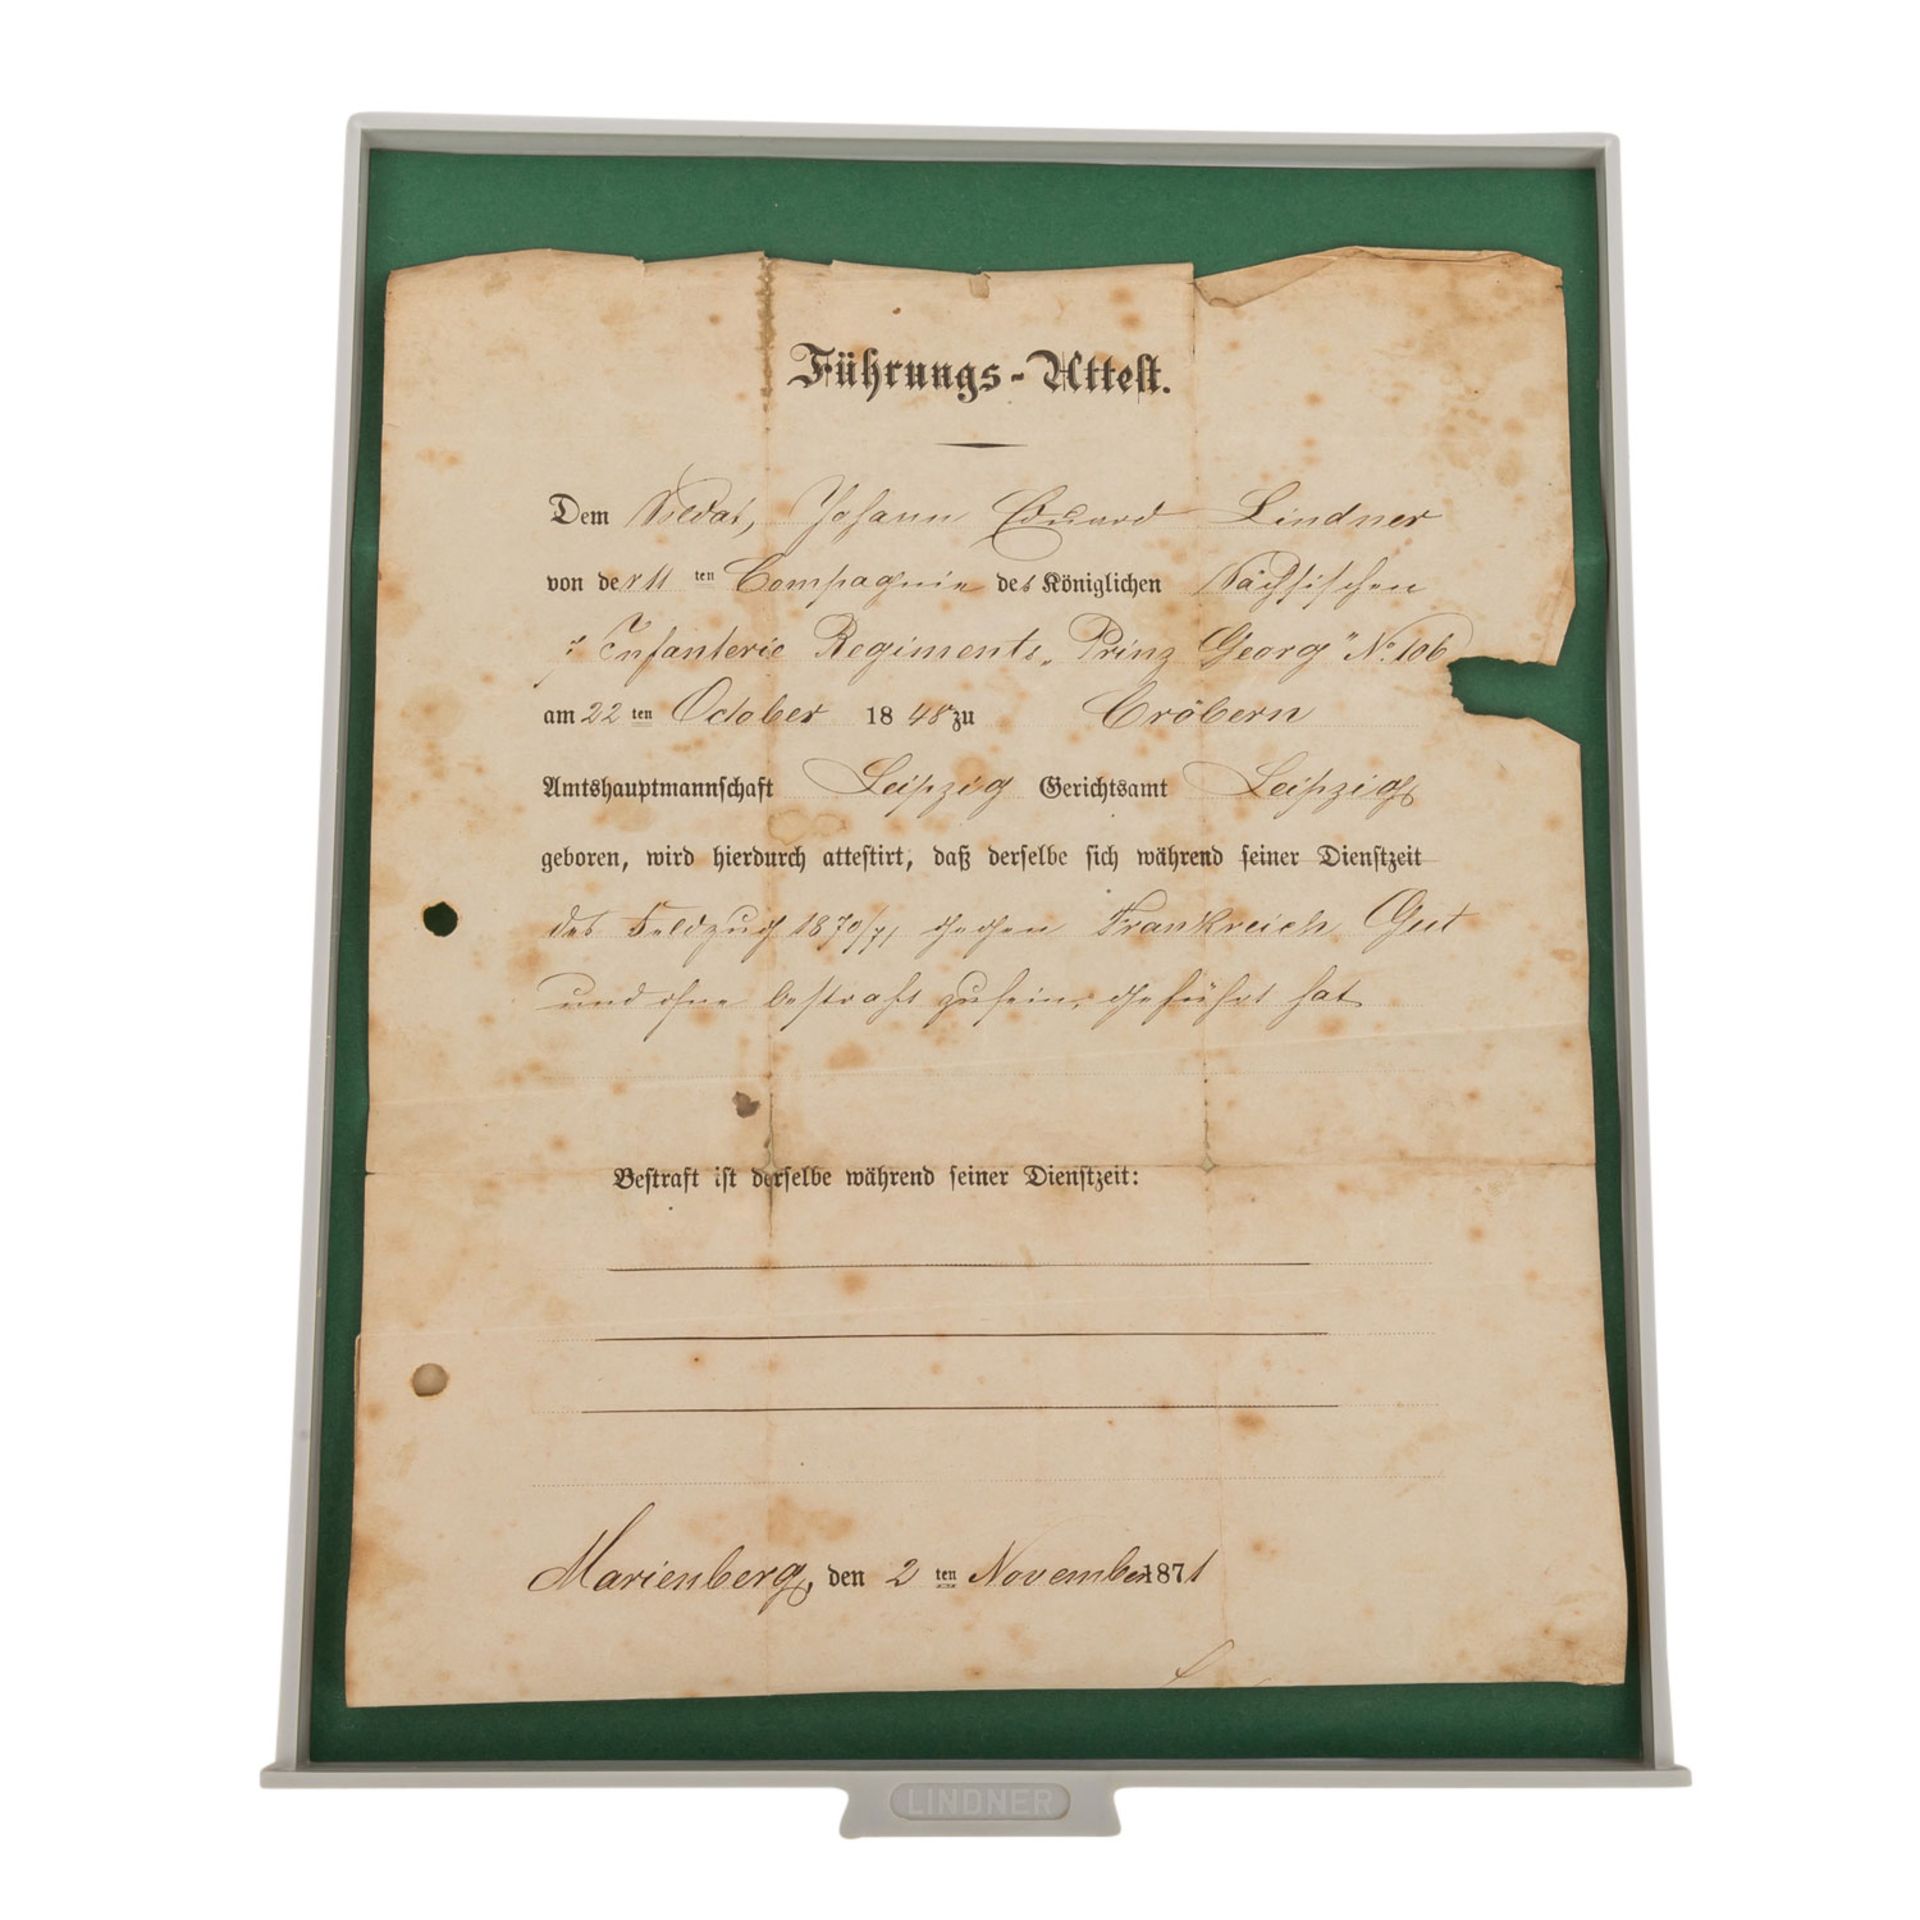 Führungs-Attest.
Dem Soldat, Johann Eduard Lindner
von der 11 ten Compagnie des Königlichen Sächsischen
Infanterie Regiments „Prinz Georg" No. 106
am 22 ten October 1848 zu Cröbern
Amtshauptmannschaft Leipzig Gerichtsamt Leipzig
geboren, wird hierdurch attestirt, daß derselbe sich während seiner Dienstzeit
des Feldzug 1870/71 gegen Frankreich Gut
und ohne bestraft zu sein, geführt hat
Bestraft ist derselbe während seiner Dienstzeit:
Marienberg, den 2 ten November 1871
LINDNER